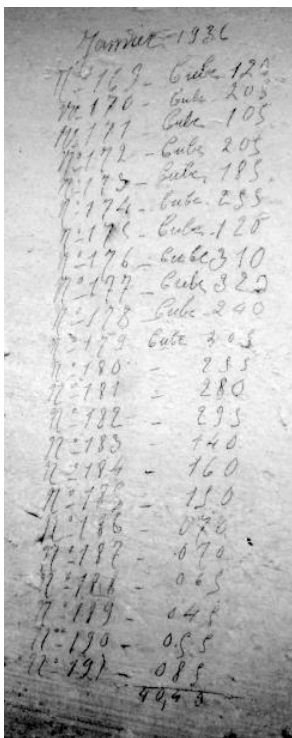 Janvier 1936
N° 169 - Cube 120
N° 170 - Cube 205
N° 171 - Cube 105
N° 172 - Cube 205
N° 173 - Cube 185
N° 174 - Cube 255
N° 175 - Cube 120
N° 176 - Cube 310
N° 177 - Cube 320
N° 178 - Cube 240
N° 179 Cube 305
N° 180 - 255
N° 181 - 280
N° 182 - 295
N° 183 - 140
N° 184 - 160
N° 185 - 150
N° 186 - 070
N° 187 - 070
N° 188 - 065
N° 189 - 045
N° 190 - 055
N° 191 - 085
40,40